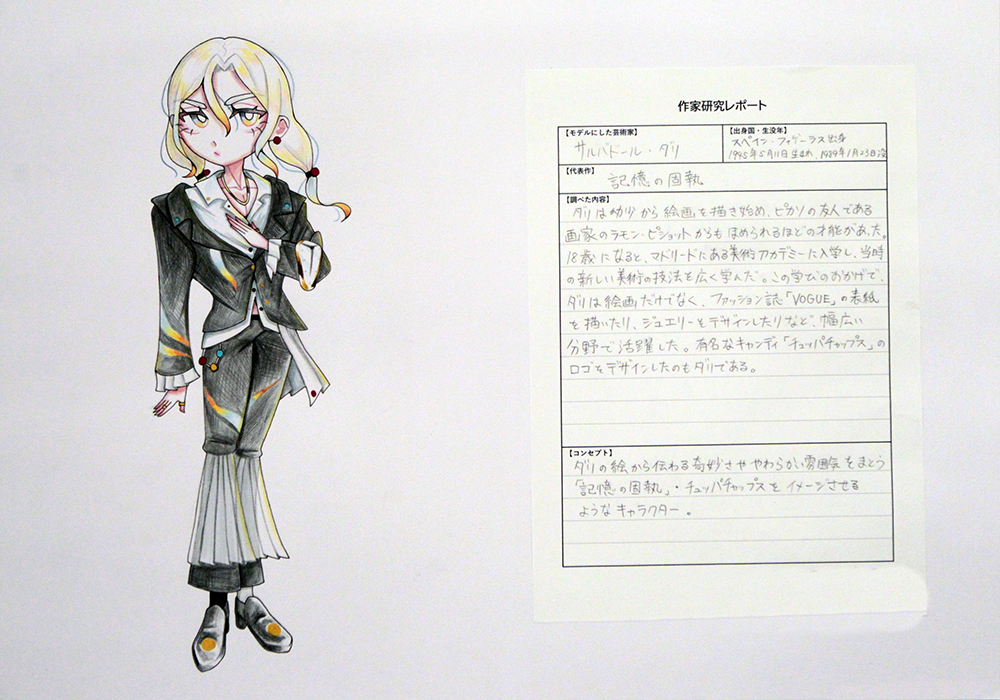 作家研究レポート
【モデルにした芸術家】
サルバドール・ダリ
【出身国・生没年】
スペイン・フィゲーラス出身
1945年5月11日生まれ、1989年1月23日没
【代表作】
記憶の固執
【調べた内容】
ダリは幼少から絵画を描き始め、ピカソの友人である
画家のラモン・ピショットからもほめられるほどの才能があった。
18歳になると、マドリードにある美術アカデミーに入学し、当時
の新しい美術の技法を広く学んだ。この学びのおかげで、
ダリは絵画だけでなく、ファッション誌「VOGUE」の表紙
を描いたり、ジュエリーをデザインしたりなど、幅広い
分野で活躍した。有名なキャンディ「チュッパチャップス」の
ロゴをデザインしたのもダリである。
【コンセプト】
ダリの絵から伝わる奇妙さややわらかい雰囲気をまとう
「記憶の固執」・チュッパチャップスをイメージさせる
ようなキャラクター。